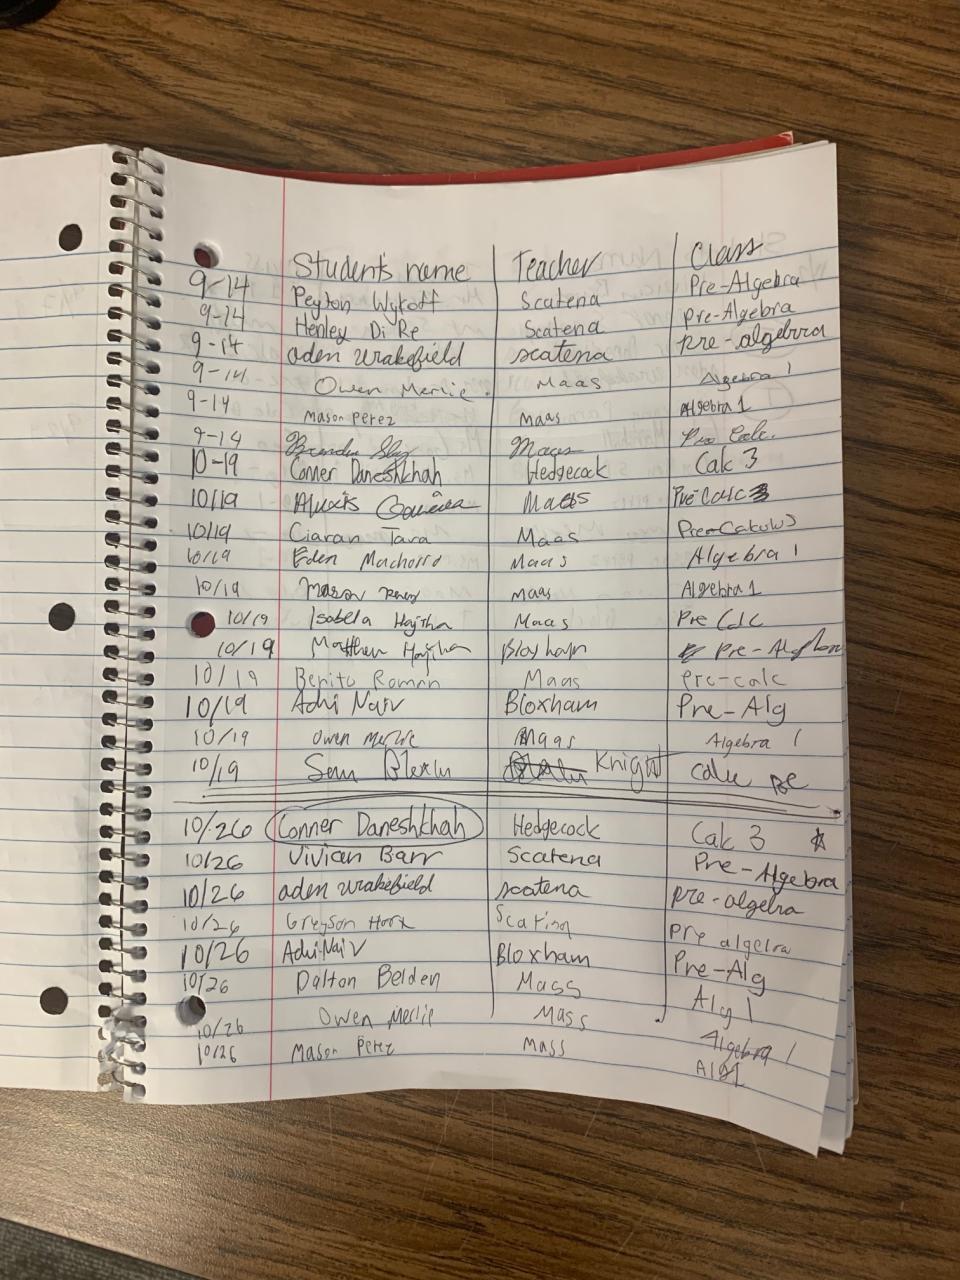 Students name Teacher Class
9-14 Peyton Wykoff Scatena Pre-Algebra
9-14 Henley Di Re Scatena Pre-Algebra
9-14 aden wrakefield scatena pre-algebra
9-14 Owen Merlie Maas Algebra 1
9-14 Mason Perez Maas Algebra 1
9-14 Maas Pre Calc.
10-19 Conner Daneshkhah Hedgecock Calc 3
10/19 Alexis Maas Pre-Calc
10/19 Ciaran Tara Maas Pre-Calculus
10/19 Eden Machorro Maas Algebra 1
10/19 Mason Perez Maas Algebra 1
10/19 Isabella Hajiha Maas Pre Calc
10/19 Matthew Hajiha Bloxham Pre-Algebra
10/19 Benito Roman Maas Pre-calc
10/19 Adhi Nair Bloxham Pre-Alg
10/19 Owen Merlie Maas Algebra 1
10/19 Sam Knight Calc
10/26 Conner Daneshkhah Hedgecock Calc 3
10/26 Vivian Barr Scatena Pre-Algebra
10/26 aden wrakefield scatena pre-algebra
10/26 Greyson Scatina Pre algebra
10/26 Adhi Nair Bloxham Pre-Alg
10/26 Dalton Belden Mass Alg 1
10/26 Owen Merlie Mass Algebra 1
10/26 Mason Perez Mass Alg1